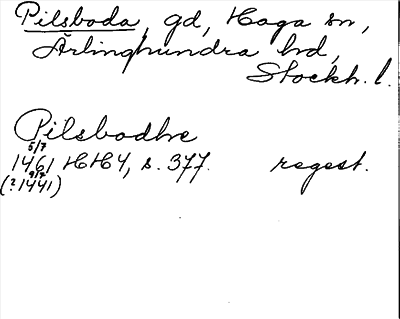 Pilsboda, gd, Haga sn,
Ärlinghundra hd,
Stockh. l.
Pilsbodhe
5/7
1461 HH 4, s. 377. regest.
9/7
(?1441)